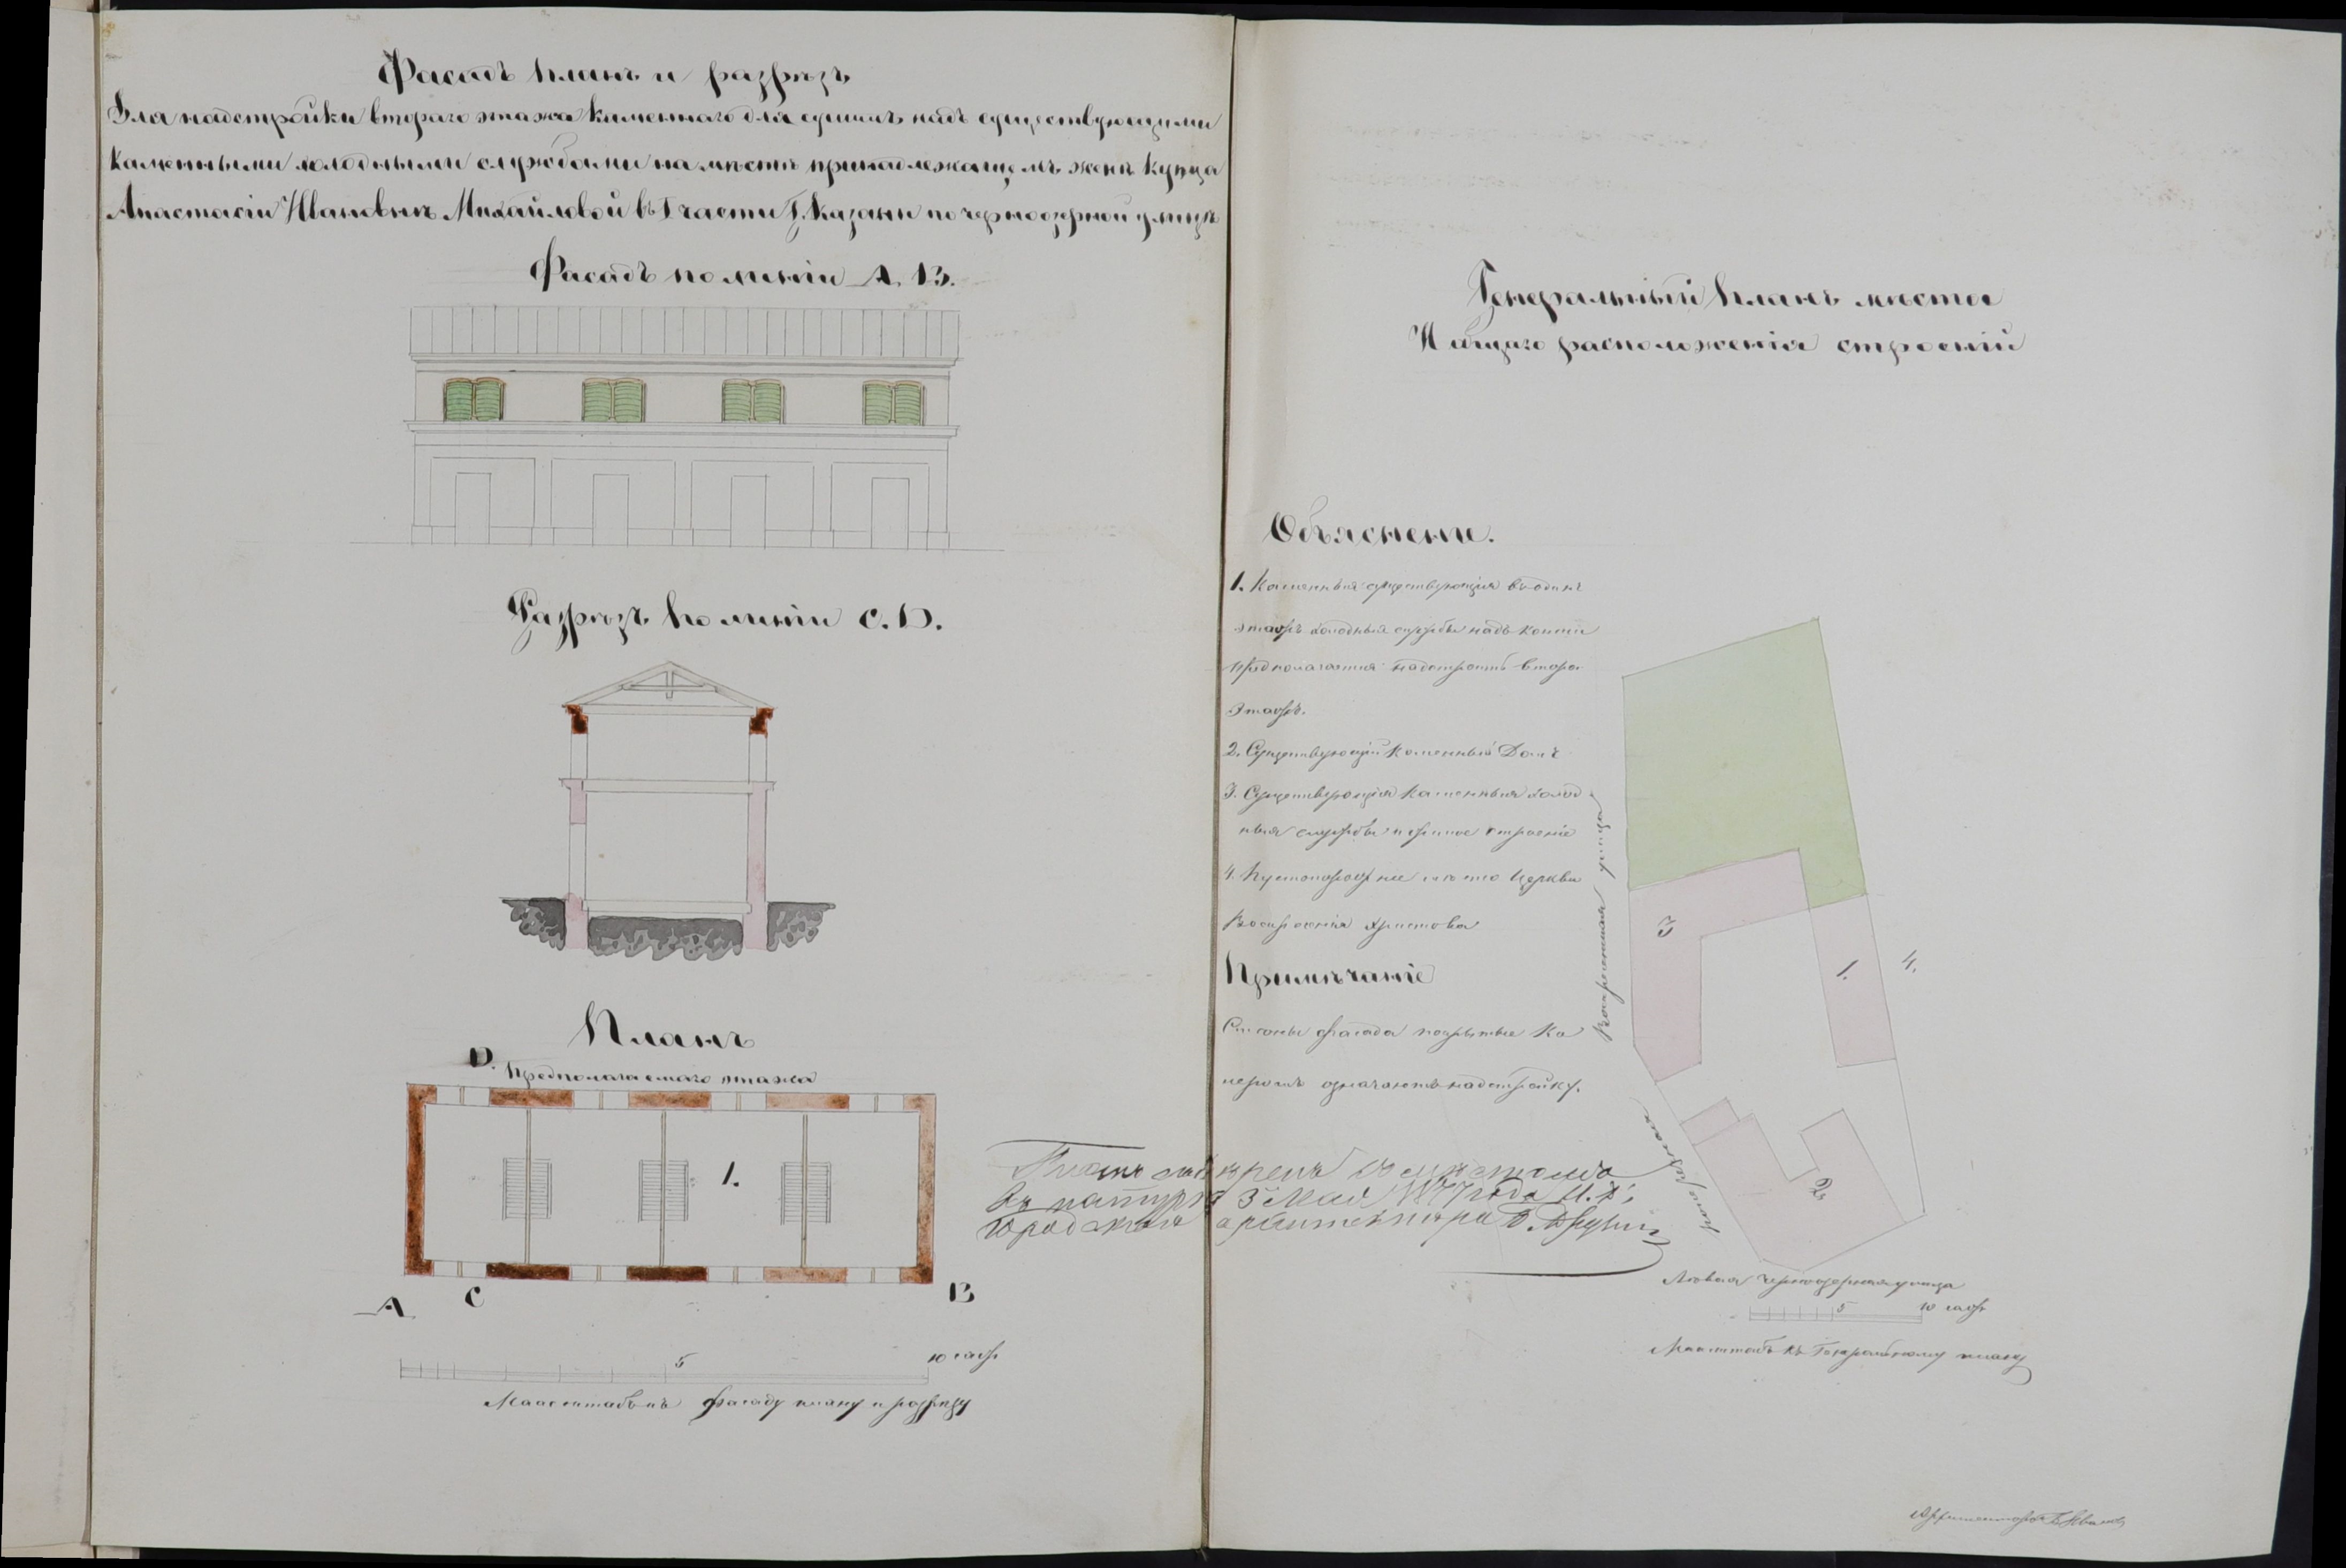 Фасадъ планъ и разрѣзъ
Для надстройки втораго этажа каменнаго для сушилъ надъ существующими
каменными холодными службами на мѣстѣ принадлежащемъ женѣ купца
Анастасіи Ивановнѣ Михайловой въ I части Г. Казани по черноозерной улицѣ
Фасадъ по линіи А. В.
Разрѣзъ по линіи С. D.
Планъ
D.
Предполагаемаго этажа
1.
А
С
В
5
10 саж
Маасштабъ къ фасаду плану и разрѣзу
Генеральный планъ мѣста
И общаго расположенія строеній
Объясненіе.
1. Каменныя существующія въ одинъ
этажъ холодныя службы надъ коими
предполагается надстроить второй
этажъ.
2. Существующій каменный Домъ
3. Существующія каменныя холод
ныя службы и жилое строеніе
4. Пустопорожнее мѣсто Церкви
Воскресенія Христова
Примѣчаніе
Стѣны фасада покрытые ка
означаютъ надстройку.
Воскресенская улица
3
1.
4.
2
Планъ съ мѣстомъ
въ натурѣ 3 Мая 1877 года И. д.
Городскаго архитектора
Малая Черноозерная улица
5
10 саж
Маасштабъ къ Генеральному плану
Архитекторъ